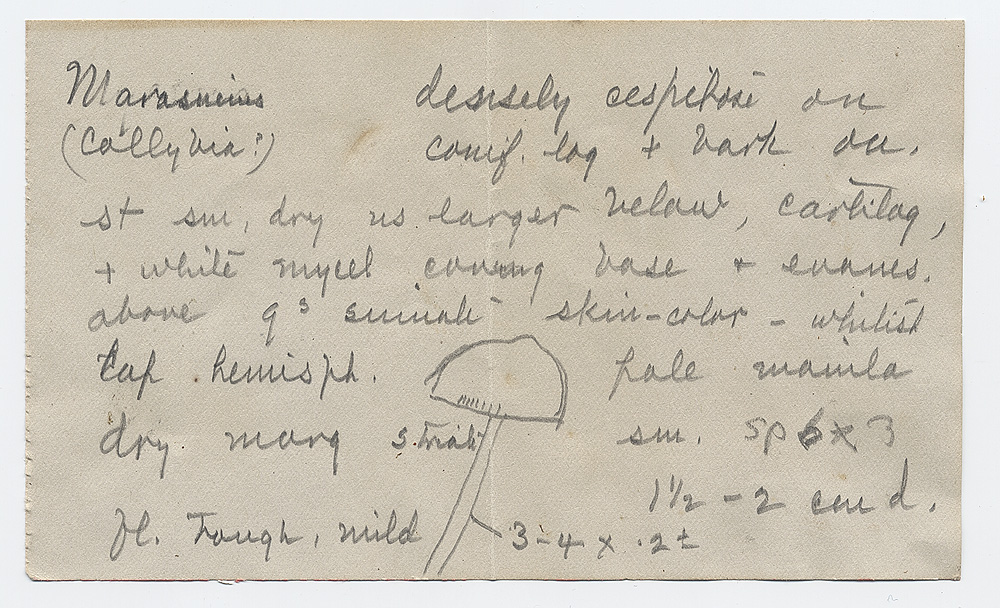 Marasmius densely cespitose on
(Collybia?) conif. log + bark on.
st sm, dry ns larger below, cartilag,
+ white mycel covering base + evanes.
above gs sinuate skin-color - whitish
Cap hemisph. pale manila
dry marg striate sm. sp 6 x 3
1½ - 2 cm d.
fl. Tough, mild 3-4 x .2±